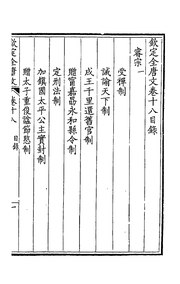 欽定全唐文卷十八目錄
睿宗一
受禪制
誡諭天下制
成王千里還舊官制
贈富嘉勗永和縣令制
定刑法制
加鎮國太平公主實封制
贈太子重俊諡節愍制
欽定全唐文
卷十八 目錄
一